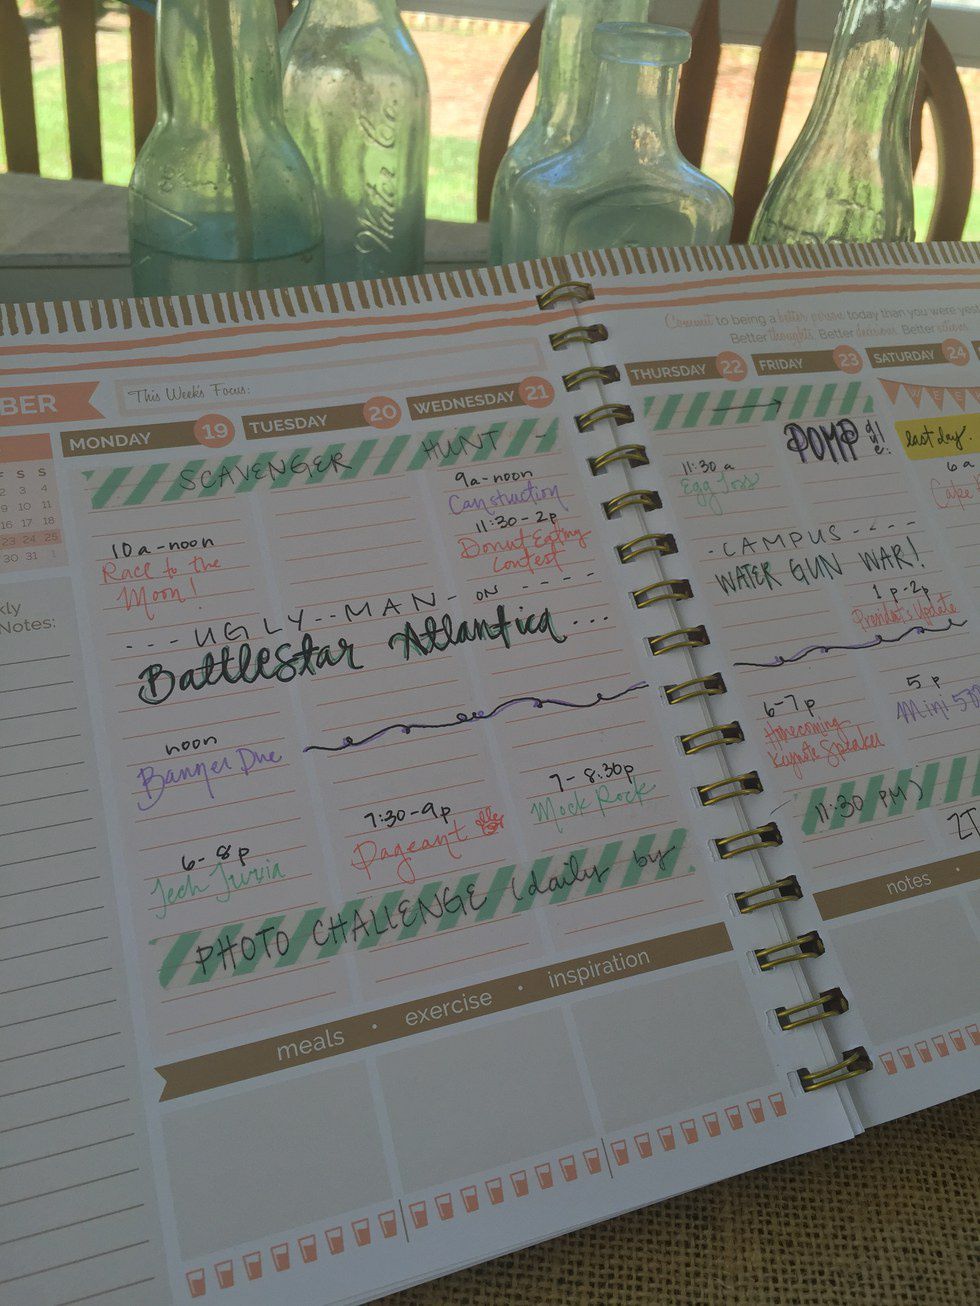 Water Co.
Commit to being a better person today than you were
Better thoughts. Better decisions. Better actions.
BER
This Week's Focus:
MONDAY 19
TUESDAY 20
WEDNESDAY 21
THURSDAY 22
FRIDAY 23
SATURDAY 24
F S S
2 3 4
9 10 11
16 17 18
23 24 25
30 31 1
Notes:
SCAVENGER HUNT -
10a-noon
Race to the
Moon!
9a-noon
Canstruction
11:30-2p
Donut Eating
Contest
--- UGLY--MAN- ON ----
Battlestar Atlantica...
noon
Banner Due
6-8p
Tech Trivia
7:30-9p
Pageant
7-8:30p
Mock Rock
PHOTO CHALLENGE (daily by
11:30 PM)
11:30a
Egg Toss
POMP
last day
6a
Cake
-CAMPUS----
WATER GUN WAR!
1p-2p
President's Update
6-7p
Homecoming
Keynote Speaker
5p
Mini 5
meals • exercise • inspiration
notes •